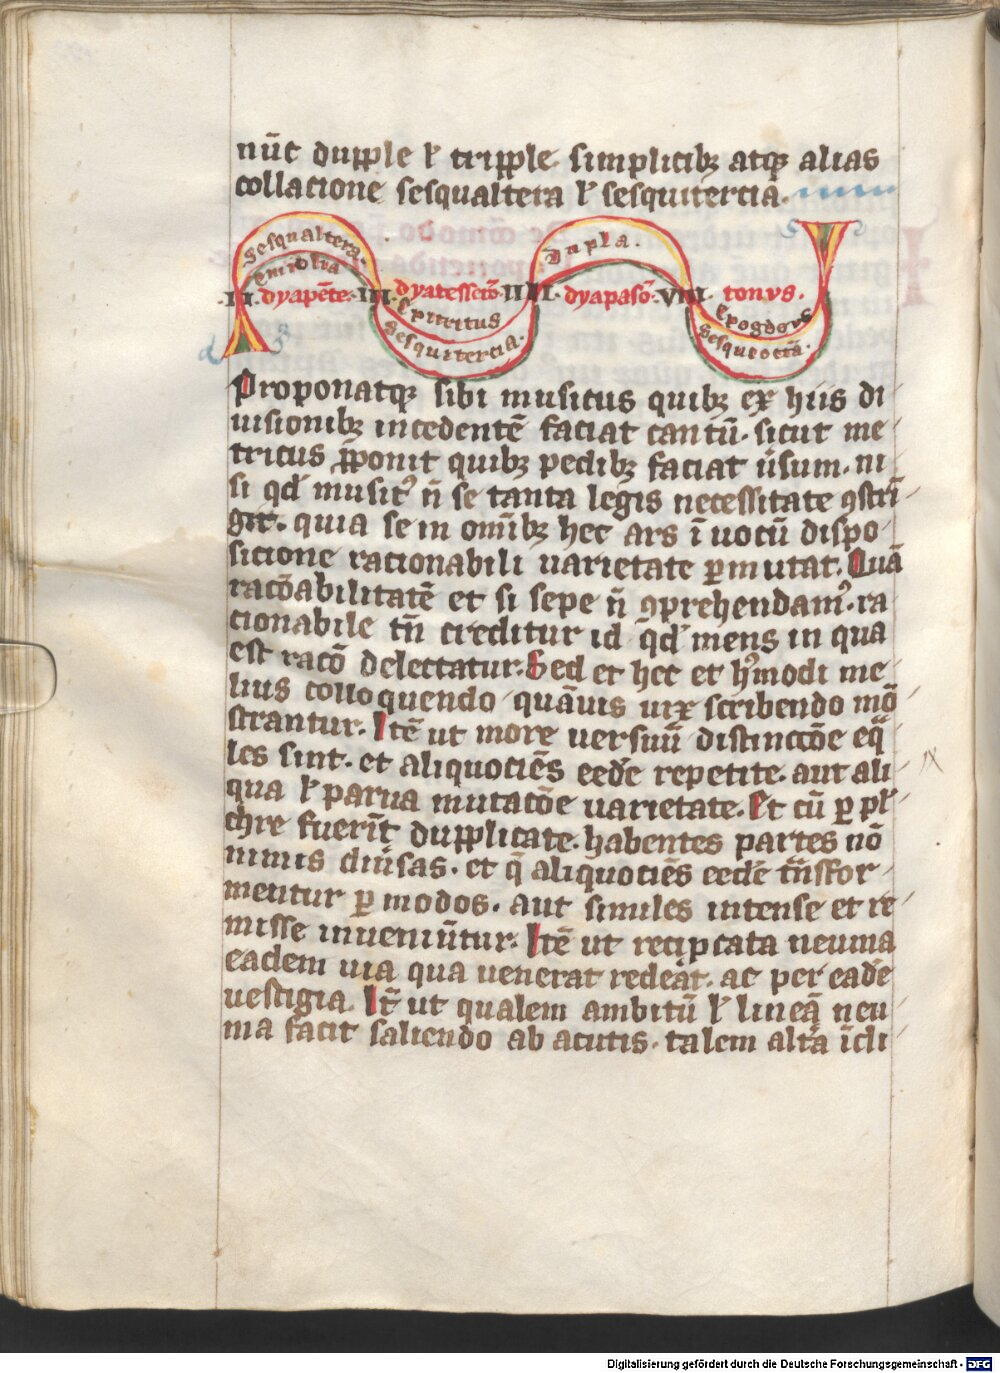 nūc dupple ł tripple simplicibꝫ atqꝫ alias
collacione sesqualtera ł sesquitercia.
Sesqualtera. Dupla.
Emiolia
.II. dyapēte. III. dyatesserō IIII. dyapasō. VIII. tonvs.
Epitritus Epogdous
Sesquitercia. Sesquioctā.
Proponatqꝫ sibi musicus quibꝫ ex hiis di
uisionibꝫ incedentē faciat cantū. sicut me
tricus ꝓponit quibꝫ pedibꝫ faciat ūsum. ni
si qd̓ musicꝰ n̄ se tanta legis necessitate ꝯstrī
git. quia se in om̄ībꝫ hec ars ī uocū dispo
sicione racionabili uarietate ꝑmutat. Quā
racōabilitatē et si sepe n̄ ꝯprehendamꝰ. ra
cionabile tn̄ creditur id qd̓ mens in qua
est racō delectatur. Sed et hec et hꝰmodi me
lius colloquendo quāuis uix scribendo mō
strantur. Itē ut more uersuū distinctōe eq̄
les sint. et aliquociēs eedē repetite. aut ali
qua ł parua mutacōe uarietate. Et cū ꝑ pl̓
chre fuerīt dupplicate. habentes partes nō
nimis diūsas. et q̄ aliquociēs eedē tn̄sfor
mentur ꝑ modos. aut similes intense et re
misse inueniūtur. Itē ut recipcata neuma
eadem uia qua uenerat redeat. ac per eadē
uestigia. It̄ ut qualem ambitū ł lineā neu
ma facit saliendo ab acutis. talem altā īcli
IX
Digitalisierung gefördert durch die Deutsche Forschungsgemeinschaft - DFG